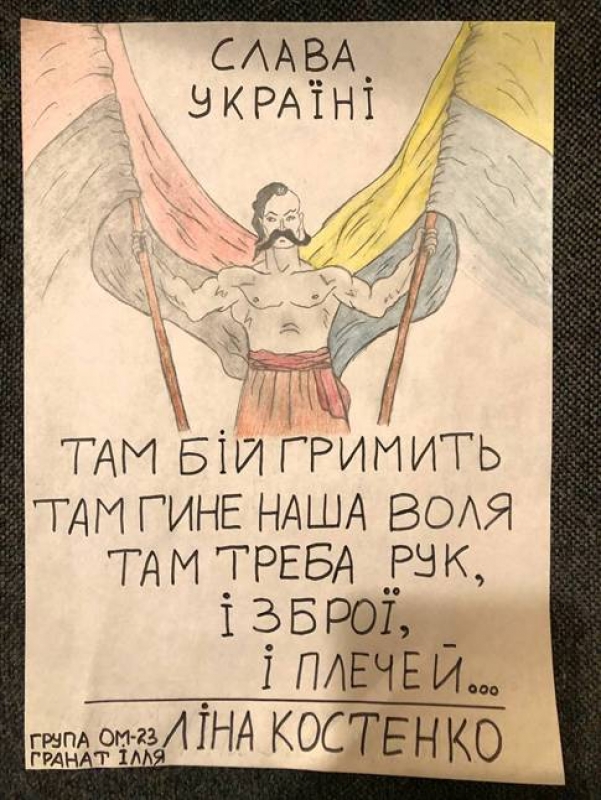 СЛАВА
УКРАЇНІ
ТАМ БІЙ ГРИМИТЬ
ТАМ ГИНЕ НАША ВОЛЯ
ТАМ ТРЕБА РУК,
І ЗБРОЇ,
І ПЛЕЧЕЙ...
ЛІНА КОСТЕНКО
ГРУПА ОМ-23
ГРАНАТ ІЛЛЯ